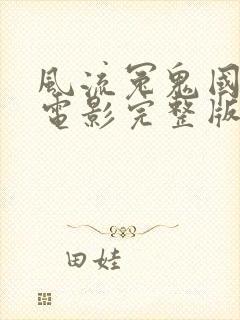 風流冤鬼國
電影完整版
田娃